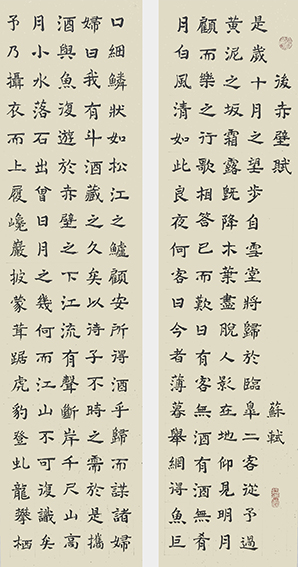 後赤壁賦 蘇軾
是歲十月之望步自雪堂將歸於臨皋二客從予過
黃泥之坂霜露既降木葉盡脫人影在地仰見明月
顧而樂之行歌相答已而歎曰有客無酒有酒無肴
月白風清如此良夜何客曰今者薄暮舉網得魚巨
口細鱗狀如松江之鱸顧安所得酒乎歸而謀諸婦
婦曰我有斗酒藏之久矣以待子不時之需於是攜
酒與魚復遊於赤壁之下江流有聲斷岸千尺山高
月小水落石出曾日月之幾何而江山不可復識矣
予乃攝衣而上履巉巖披蒙茸踞虎豹登虬龍攀栖